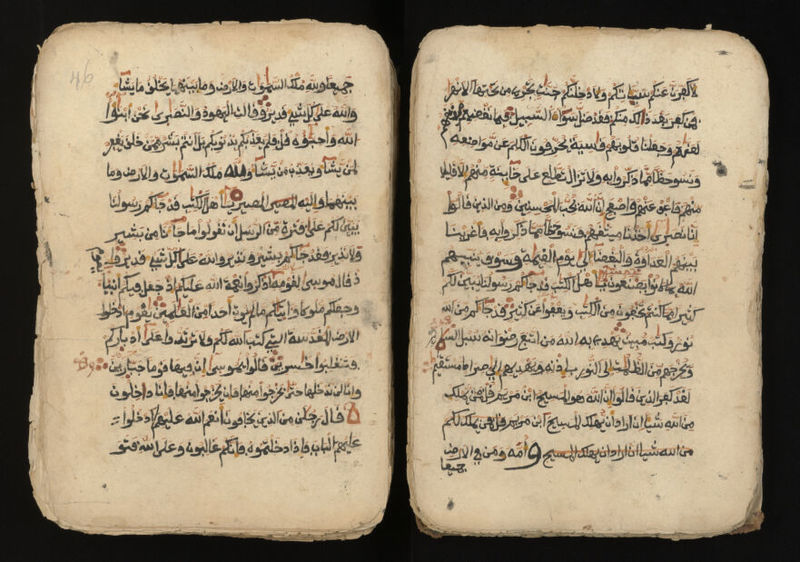 لأكفرن عنكم سيئاتكم ولأدخلنكم جنت تجري من تحتها الانهر
فمن كفر بعد ذالك منكم فقد ضل سواء السبيل فبما نقضهم ميثقهم
لعنهم وجعلنا قلوبهم قسية يحرفون الكلم عن مواضعه
ونسوا حظا مما ذكروا به ولا تزال تطلع على خاينة منهم الا قليلا
منهم فاعف عنهم واصفح ان الله يحب المحسنين ومن الذين قالوا
انا نصرى اخذنا ميثقهم فنسوا حظا مما ذكروا به فاغرينا
بينهم العداوة والبغضاء الى يوم القيمة وسوف ينبيهم
الله بما كانوا يصنعون يأهل الكتب قد جاكم رسولنا يبين لكم
كثيرا مما كنتم تخفون من الكتب ويعفوا عن كثير قد جاكم من الله
نور وكتب مبين يهدي به الله من اتبع رضوانه سبل السلم
ويخرجهم من الظلمت الى النور باذنه ويهديهم الى صراط مستقيم
لقد كفر الذين قالوا ان الله هو المسيح ابن مريم قل فمن يملك
من الله شيا ان اراد ان يهلك المسيح ابن مريم قل فمن يملك لكم
من الله شيا ان اراد ان يهلك المسيح و امه ومن في الارض
جميعا
46
جميعا ولله ملك السموت والارض وما بينهما يخلق ما يشا
والله على كل شي قدير وقالت اليهود والنصرى نحن ابنوا
الله واحبوه قل فلم يعذبكم بذنوبكم بل انتم بشر ممن خلق يغفر
لمن يشا ويعذب من يشا ولله ملك السموت والارض وما
بينهما واليه المصير المصير يأهل الكتب قد جاكم رسولنا
يبين لكم على فترة من الرسل ان تقولوا ما جانا من بشير
ولا نذير فقد جاكم بشير ونذير والله على كل شي قدير وا
ذ قال موسى لقومه اذكروا نعمة الله عليكم اذ جعل فيكم انبيا
وجعلكم ملوكا واتيكم ما لم يوت احدا من العلمين يقوم ادخلوا
الارض المقدسة التي كتب الله لكم ولا ترتدوا على ادباركم
فتنقلبوا خسرين قالوا يموسى ان فيها قوما جبارين
وانا لن ندخلها حتى يخرجوا منها فان يخرجوا منها فانا داخلون
قال رجلن من الذين يخافون انعم الله عليهما ادخلوا
عليهم الباب فاذا دخلتموه فانكم غالبون وعلى الله فتو